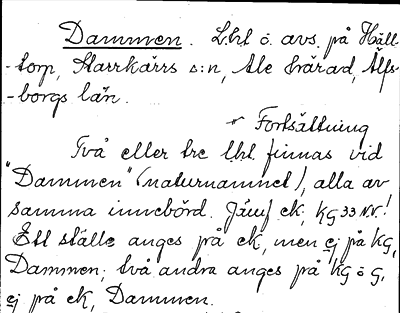 Dammen. Lht ö. avs. på Häll-
-torp, Starrkärrs s:n, Ale härad, Älfs-
-borgs län.
Fortsättning
Två eller tre lht. finnas vid
"Dammen" (naturnamnet), alla av
samma innebörd. Jämf ek, KG 33 NV!
Ett ställe anges på ek, men ej på KG,
Dammen; två andra anges på KG ö G,
ej på ek, Dammen.